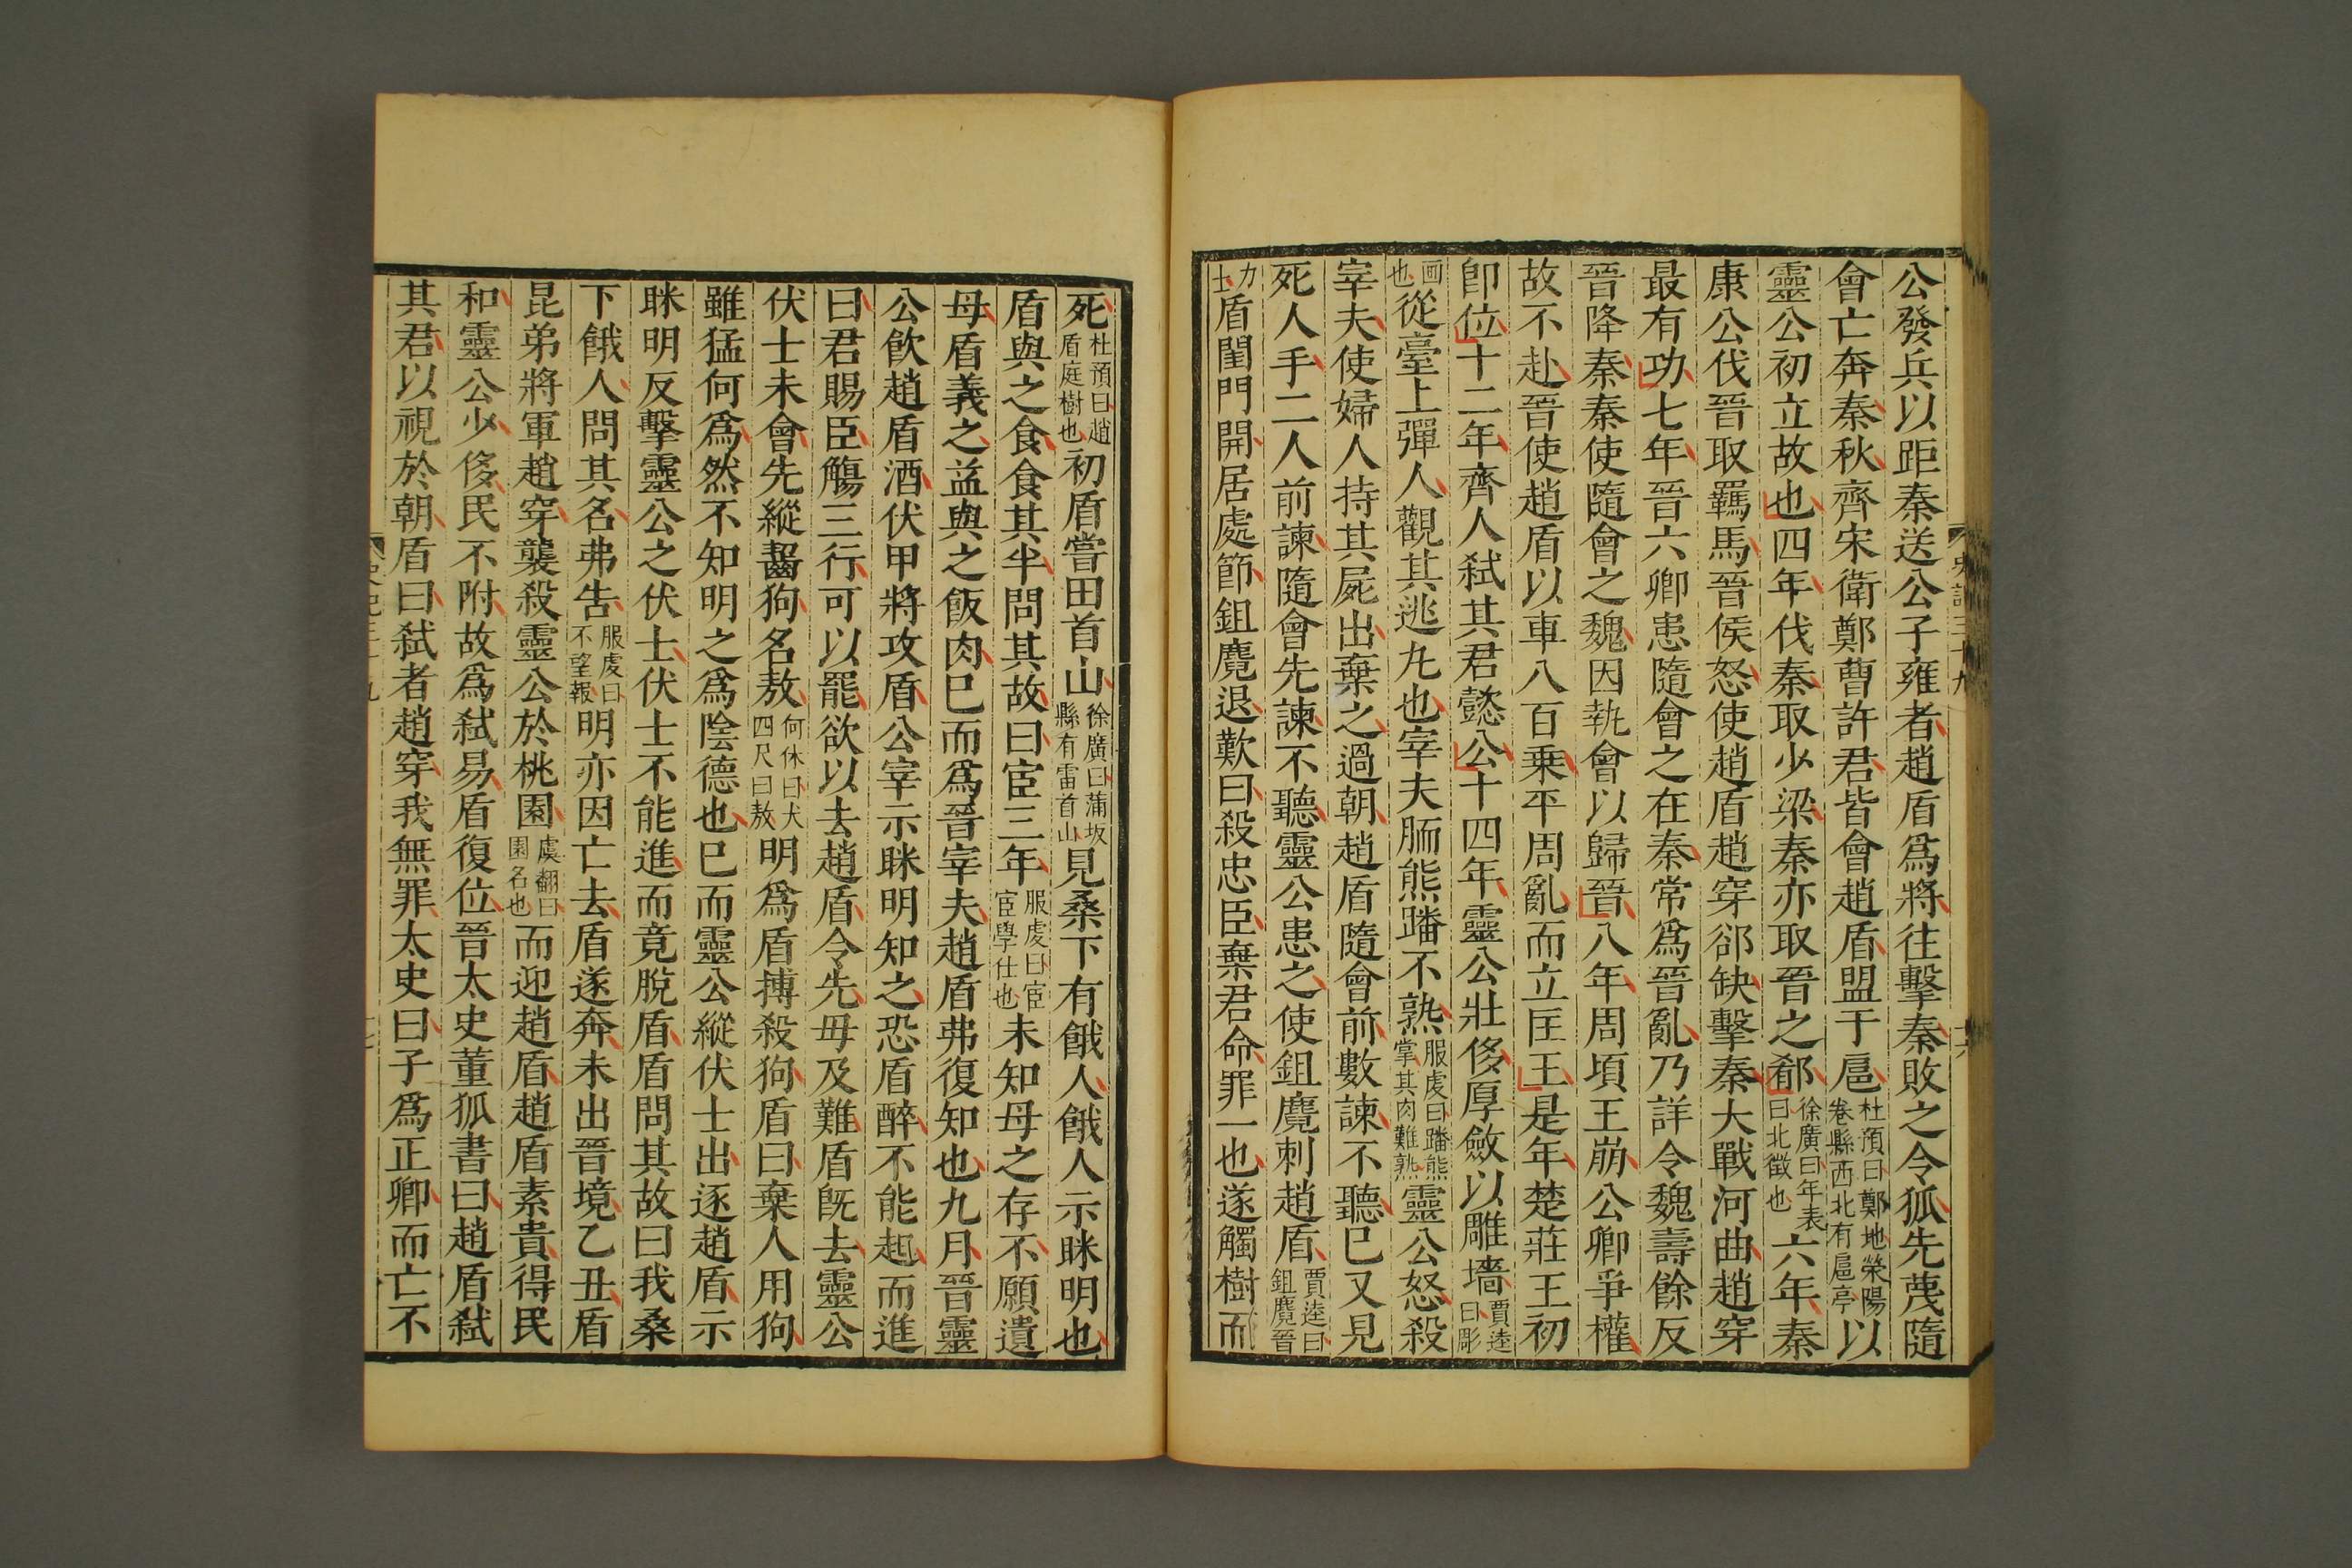 公發兵以距秦送公子雍者趙盾爲將往擊秦敗之令狐先蔑隨
會亡奔秦秋齊宋衛鄭曹許君皆會趙盾盟于扈杜預曰鄭地滎陽卷縣西北有扈亭以
靈公初立故也四年伐秦取少梁秦亦取晉之郩徐廣曰年表曰北徵也六年秦
康公伐晉取羈馬晉侯怒使趙盾趙穿郤缺擊秦大戰河曲趙穿
最有功七年晉六卿患隨會之在秦常爲晉亂乃詳令魏壽餘反
晉降秦秦使隨會之魏因執會以歸晉八年周頃王崩公卿爭權
故不赴晉使趙盾以車八百乘平周亂而立匡王是年楚莊王初
卽位十二年齊人弑其君懿公十四年靈公壯侈厚斂以雕墻賈逵曰彫
画也從臺上彈人觀其逃丸也宰夫胹熊蹯不熟服虔曰蹯熊掌其肉難熟靈公怒殺
宰夫使婦人持其屍出棄之過朝趙盾隨會前數諫不聽已又見
死人手二人前諫隨會先諫不聽靈公患之使鉏麑刺趙盾賈逵曰鉏麑晉
力士盾閨門開居處節鉏麑退歎曰殺忠臣棄君命罪一也遂觸樹而
死杜預曰趙盾庭樹也初盾嘗田首山徐廣曰蒲坂縣有雷首山見桑下有餓人餓人示眯明也
盾與之食食其半問其故曰宦三年服虔曰宦宦學仕也未知母之存不願遺
母盾義之益與之飯肉已而爲晉宰夫趙盾弗復知也九月晉靈
公飮趙盾酒伏甲將攻盾公宰示眯明知之恐盾醉不能起而進
曰君賜臣觴三行可以罷欲以去趙盾令先毋及難盾旣去靈公
伏士未會先縱齧狗名敖何休曰犬四尺曰敖明爲盾搏殺狗盾曰棄人用狗
雖猛何爲然不知明之爲陰德也已而靈公縱伏士出逐趙盾示
眯明反擊靈公之伏士伏士不能進而竟脫盾盾問其故曰我桑
下餓人問其名弗告服虔曰不望報明亦因亡去盾遂奔未出晉境乙丑盾
昆弟將軍趙穿襲殺靈公於桃園虞翻曰園名也而迎趙盾趙盾素貴得民
和靈公少侈民不附故爲弑易盾復位晉太史董狐書曰趙盾弑
其君以視於朝盾曰弑者趙穿我無罪太史曰子爲正卿而亡不